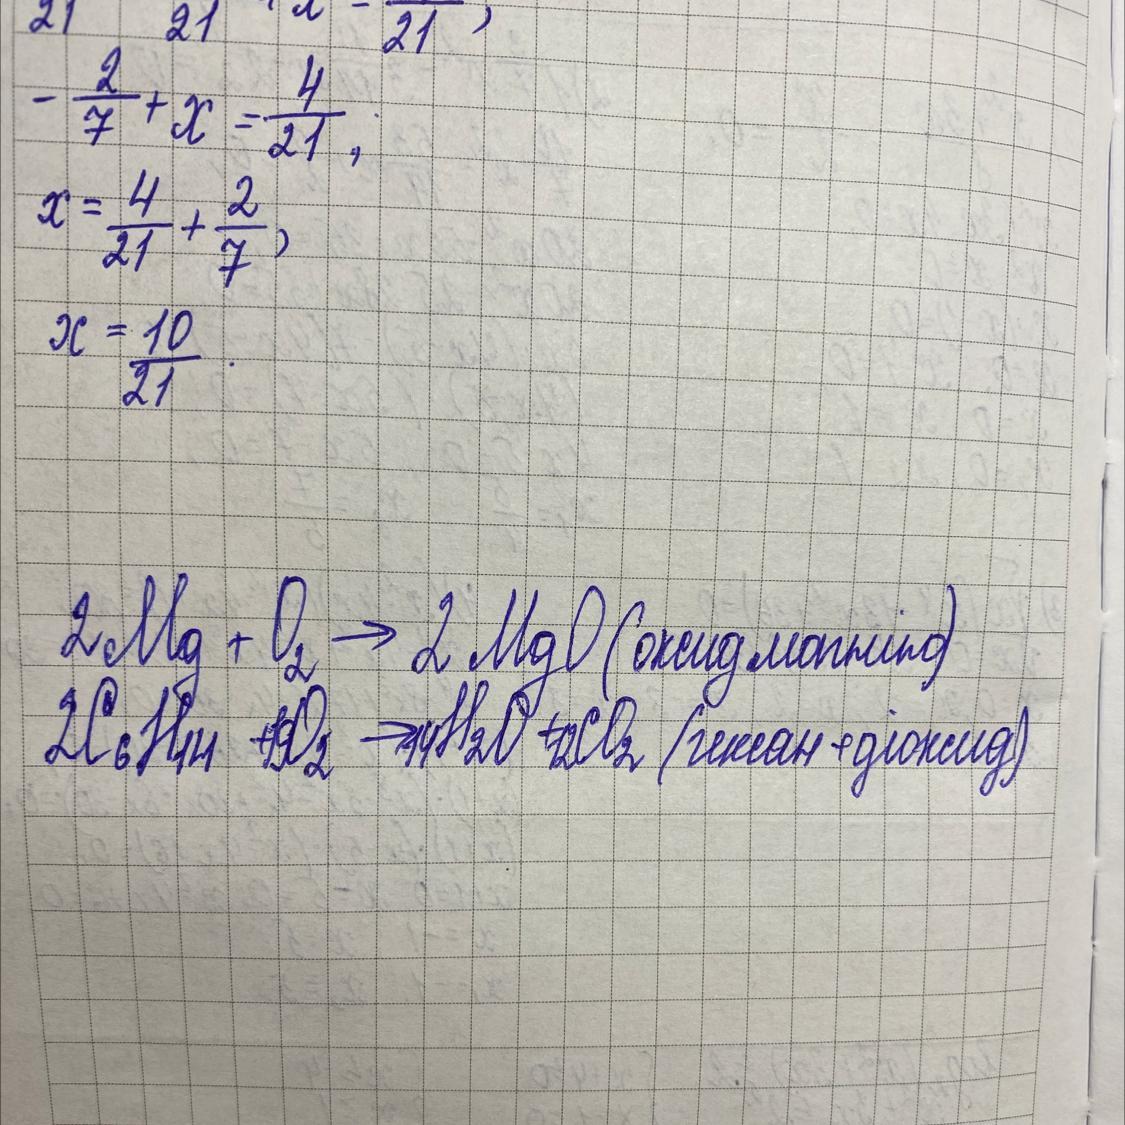 21 21 + x = 21 ;
- 2/7 + x = 4/21 ;
x = 4/21 + 2/7 ;
x = 10/21 .
2Mg + O₂ → 2MgO (оксид магнію)
2C₆H₁₄ + 19O₂ → 14H₂O + 12CO₂ (гексан + діоксид)